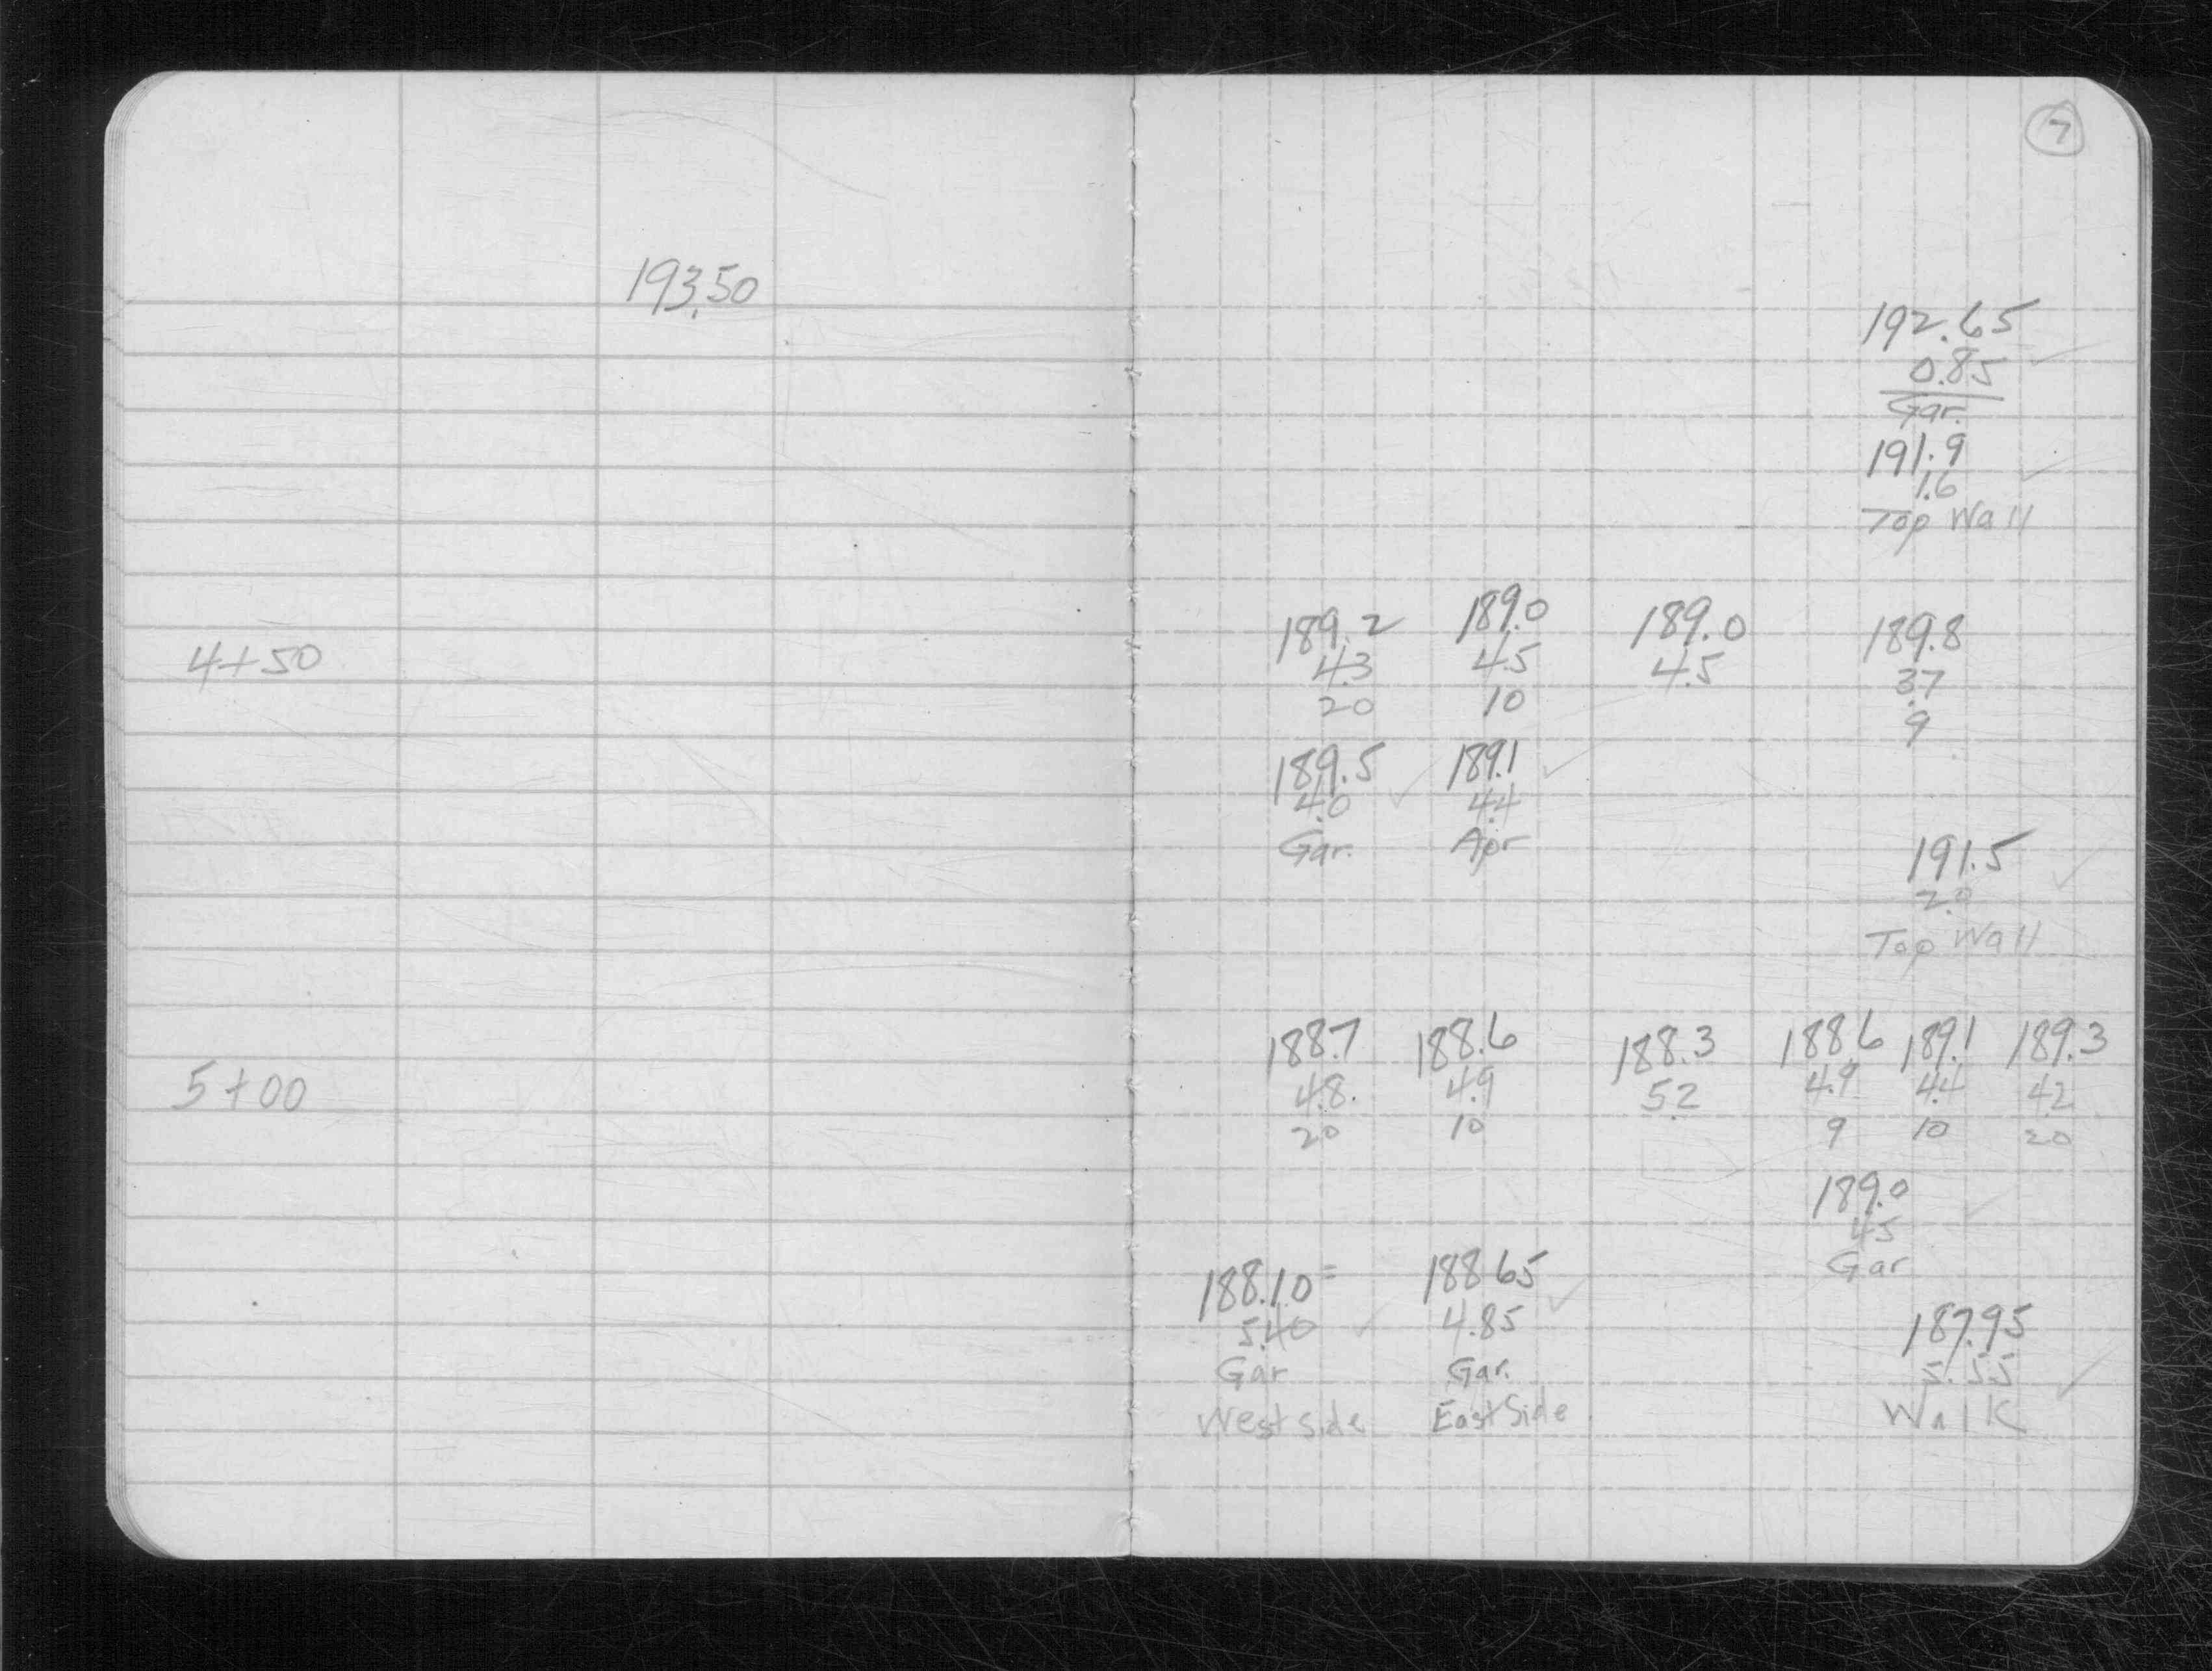 7
193.50
192.65
0.85
Gar.
191.9
1.6
Top Wall
4+50 189.2 189.0 189.0 189.8
4.3 4.5 4.5 3.7
20 10 9
189.5 189.1
4.0 4.4
Gar. Apr
191.5
2.0
Top Wall
5+00 188.7 188.6 188.3 188.6 189.1 189.3
4.8. 4.9 5.2 4.9 4.4 4.2
20 10 9 10 20
189.0
4.5
Gar
188.10= 188.65
5.40 4.85
Gar Gar.
West side East Side
187.95
5.55
Walk